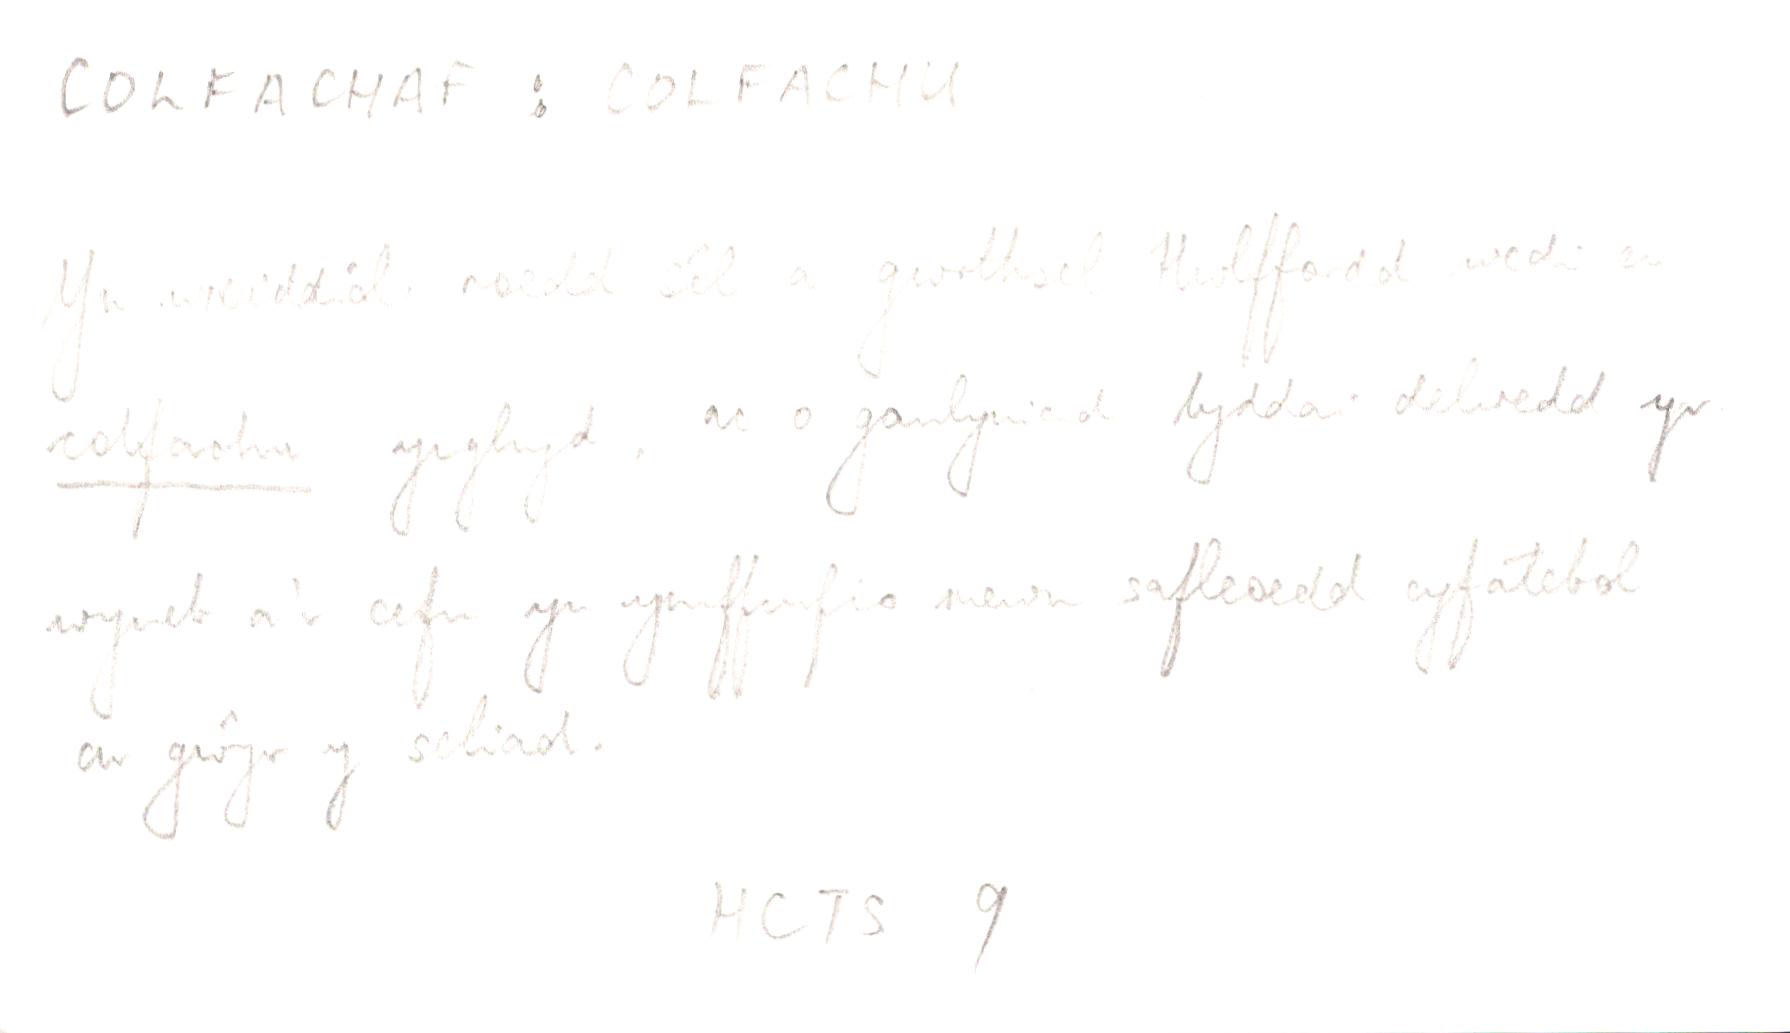 COLFACHAF : COLFACHU
Yn wreiddiol roedd sêl a gwrthsel Hwlffordd wedi eu
colfachu ynghyd, ac o ganlyniad byddai delwedd yr
wyneb a'r cefn yn ymffurfio mewn safleoedd cyfatebol
ar gŵyr y seliad.
HCTS 9